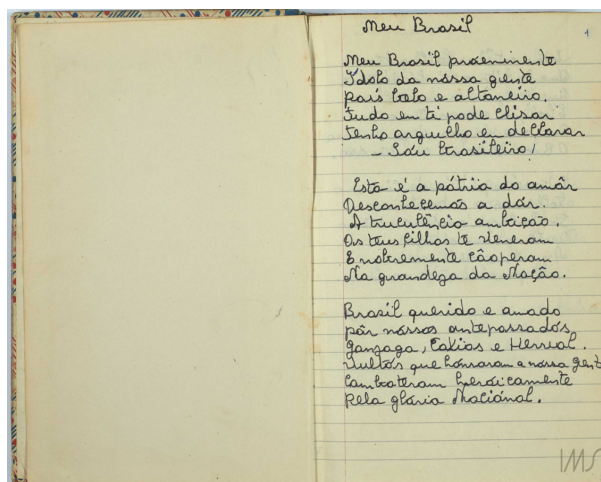 Meu Brasil
1
Meu Brasil proeminente
Idolo da nossa gente
país belo e altaneiro.
Tudo en ti pode
Tenho orgulho en declarar
- Sou brasileiro!
Esta é a pátria do amôr
Desconhecemos a dôr.
A truculência ambição.
Os teus filhos te veneram
E nobremente cooperam
Na grandeza da Nação.
Brasil querido e amado
pôr nossos antepassados
Gonzaga, Caxias e
Vultos que honraram a nossa gent
Combateram heroicamente
Pela glória Nacional.
IMS